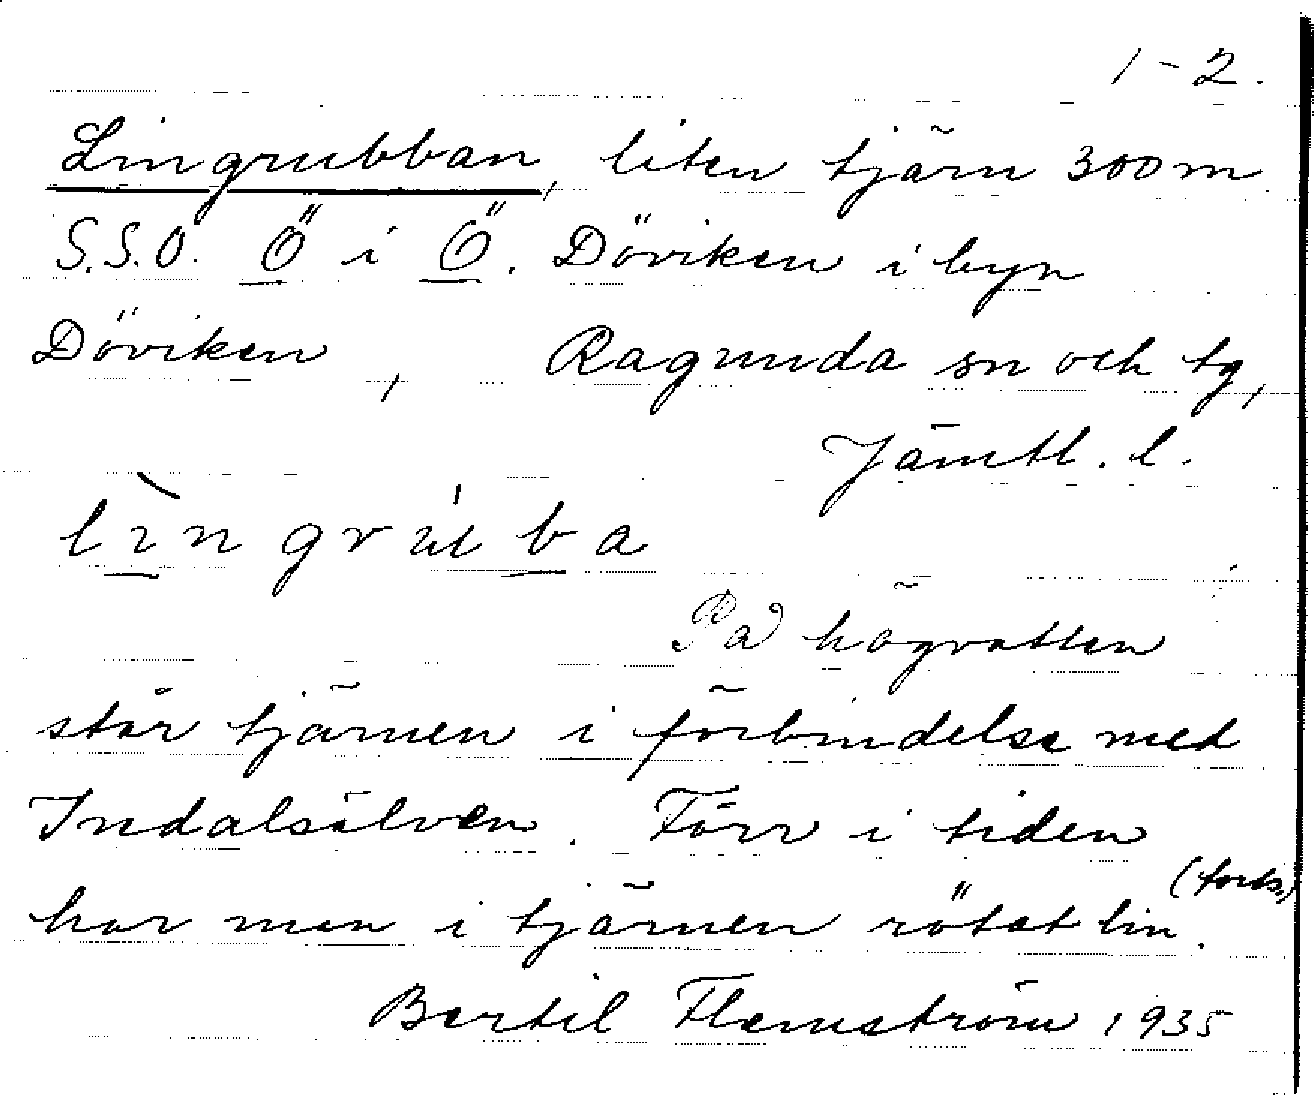 1-2.
Lingrubban, liten tjärn 300 m
S.S.O. Ö i Ö. Döviken i byn
Döviken, Ragunda sn och tg,
Jämtl. l.
lìngrúba
På högvatten
står tjärnen i förbindelse med
Indalsälven. Förr i tiden
har man i tjärnen rötat lin.
(forts.)
Bertil Flemström 1935